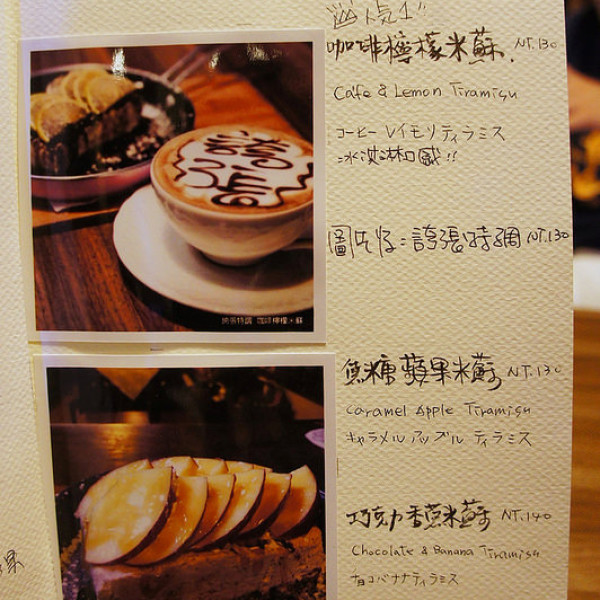 人氣1"
咖啡檸檬米蘇 NT.130
Cafe & Lemon Tiramisu
コーヒー レイモソティラミス
冰淇淋口感!!
誇張
誇張時調 NT.130
焦糖蘋果米蘇 NT.130
Caramel Apple Tiramisu
キャラメル アップル ティラミス
巧克力香蕉米蘇 NT.140
Chocolate & Banana Tiramisu
チョコバナナティラミス